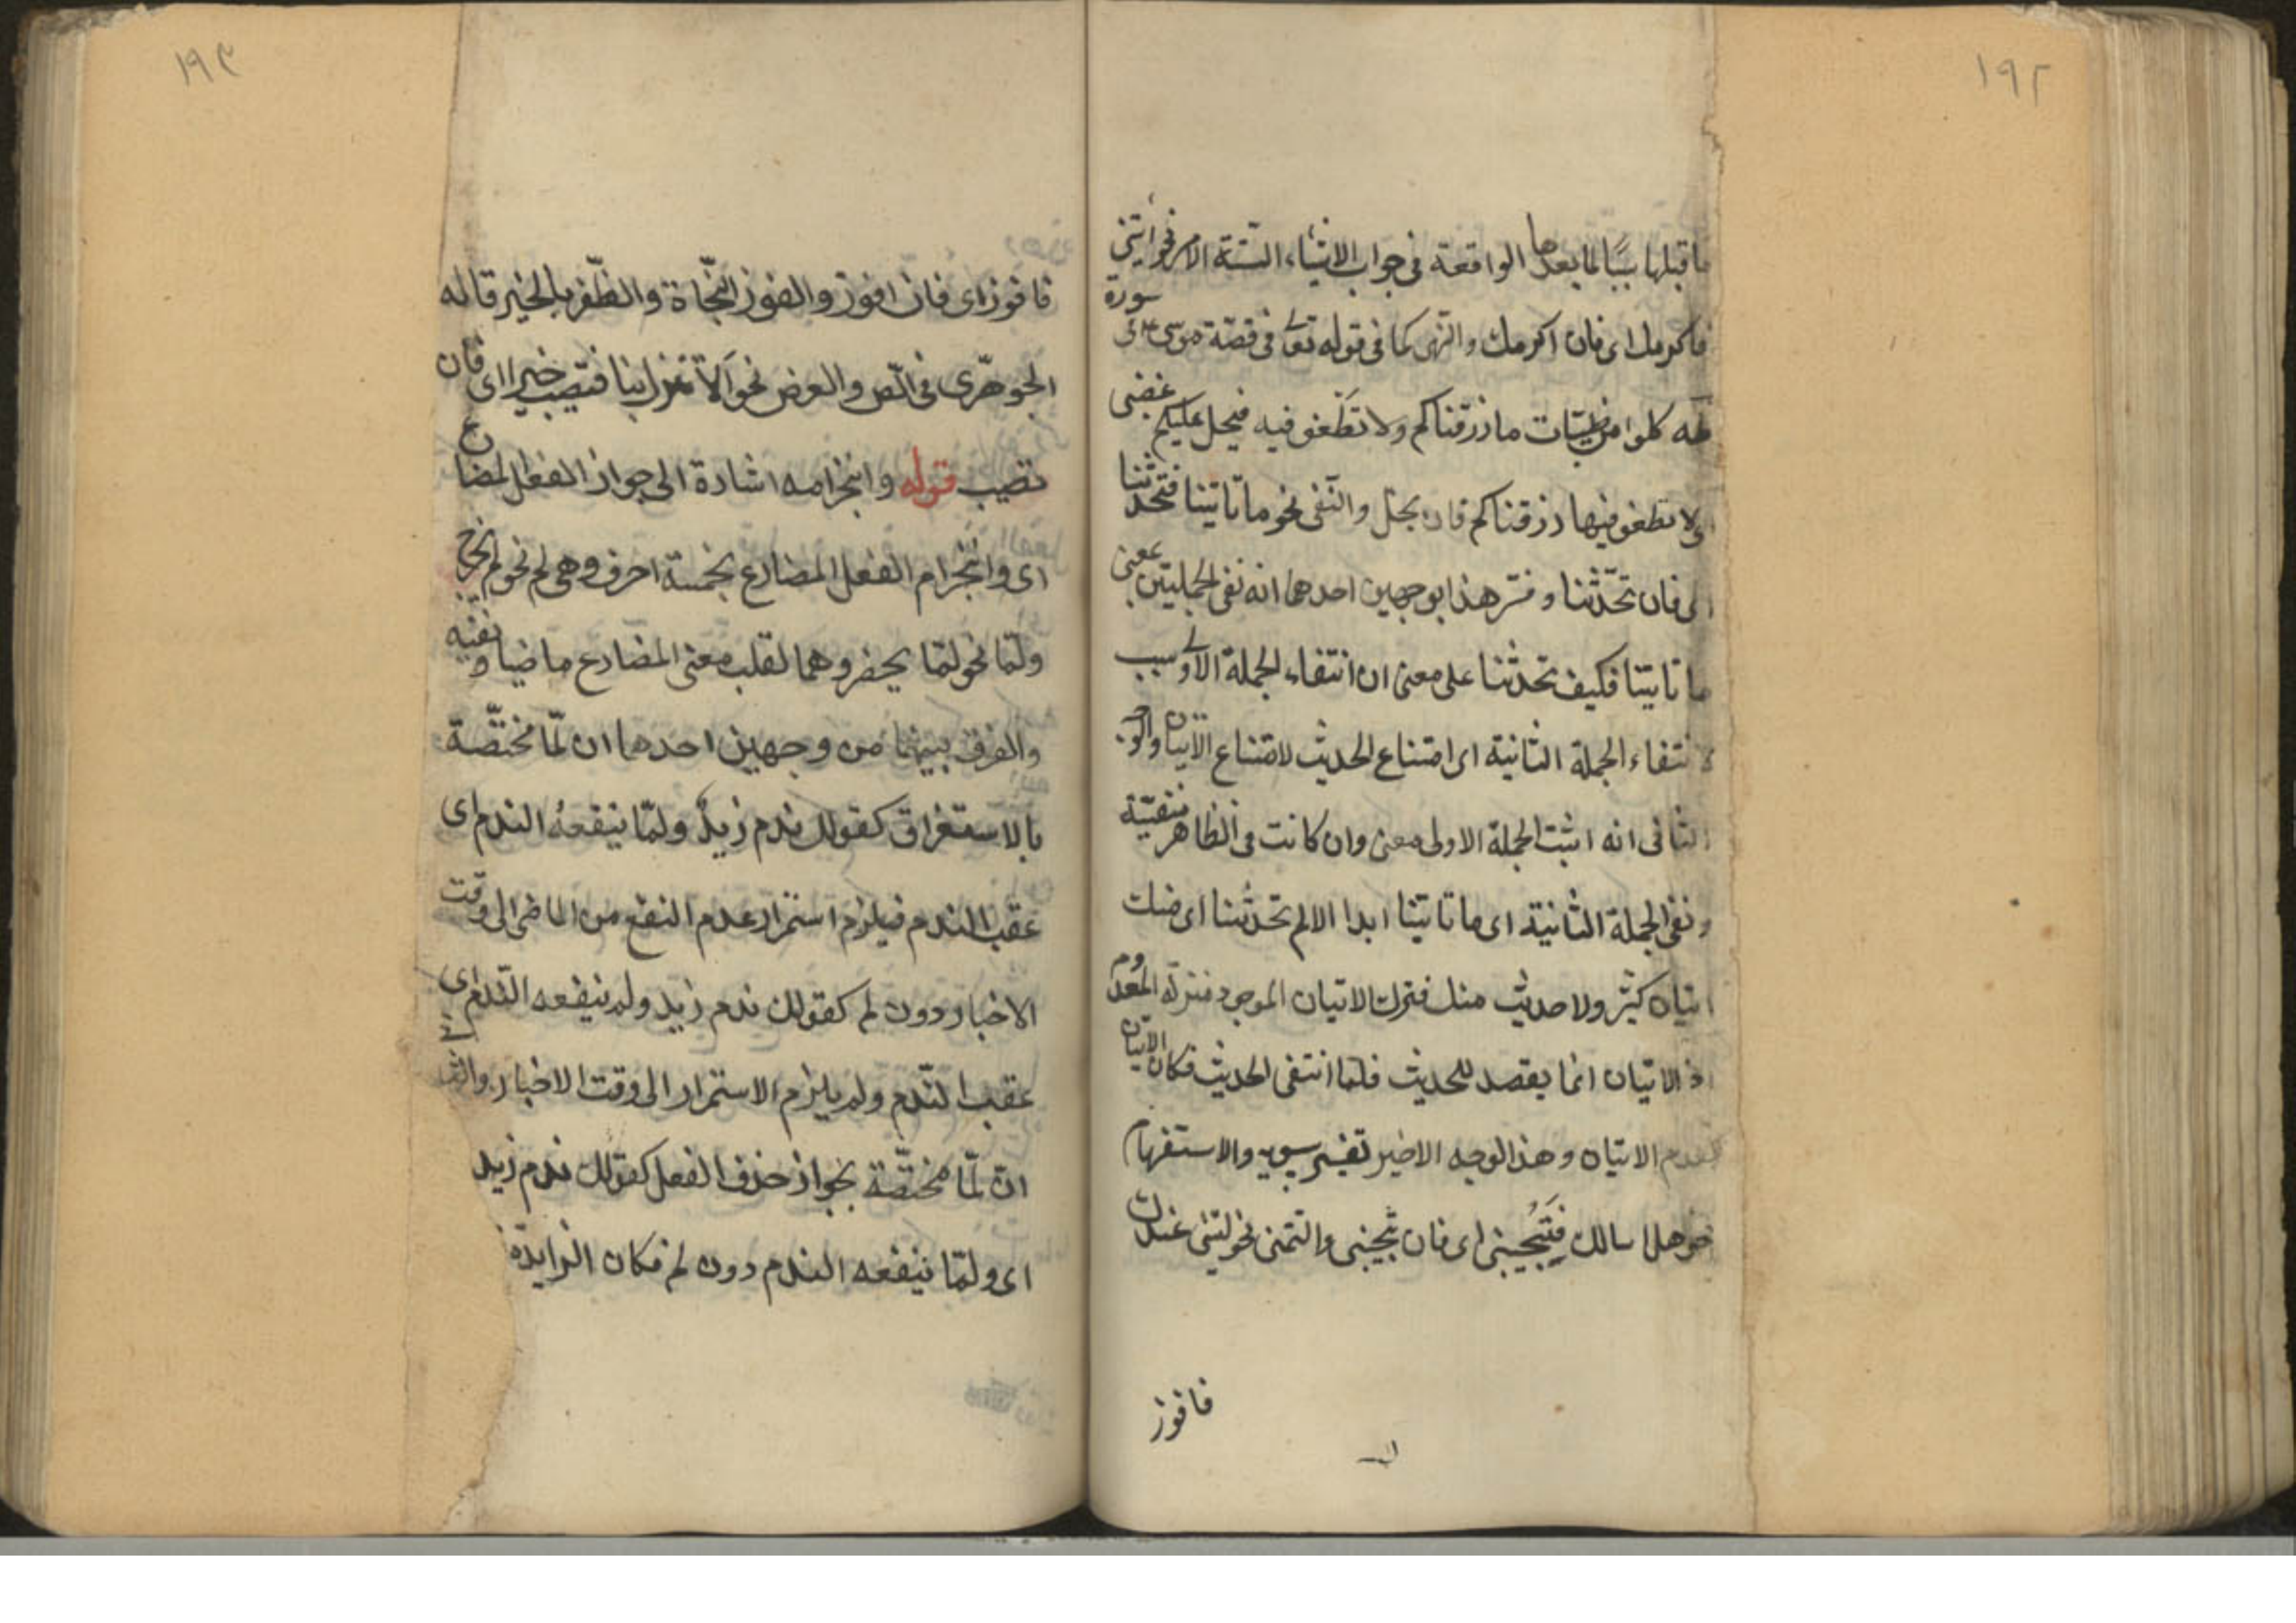 ١٩٢
ما قبلها سببا لما بعدها الواقعة فى جواب الاشياء الستة الامر نحو ايتنى
فاكرمك اى فان اكرمك والنهى كما فى قوله تعا فى قصة موسى ع فى سورة
طه كلوا من طيبات ما رزقناكم ولا تطغو فيه فيحل عليكم غضبى
اى لا تطغو فيها رزقناكم فان يحل والنفى نحو ما تاتينا فتحدثنا
اى فان تحدثنا وفسر هذا بوجهين احدهما انه نفى الجملتين بمعنى
ما تاتينا فكيف تحدثنا على معنى ان انتفاء الجملة الاولى سبب
لانتفاء الجملة الثانية اى امتناع الحديث لامتناع الاتيان والوجه
الثانى انه اثبت الجملة الاولى معنى وان كانت فى الظاهر منفية
ونفى الجملة الثانية اى ما تاتينا ابدا الا لم تحدثنا اى منك
اتيان كثير ولا حديث منك فنزل الاتيان الموجود منزلة المعدوم
اذ الاتيان انما يقصد للحديث فلما انتفى الحديث فكان الاتيان
كعدم الاتيان وهذا الوجه الاخير تفسير سيبويه والاستفهام
نحو هل اسالك فتجيبنى اى فان تجيبنى والتمنى نحو ليتنى عندك
فافوز
١٩٣
فافوز اى فان افوز والفوز النجاة والظفر بالخير قاله
الجوهرى فى الص والعرض نحو الا تنزل بنا فتصيب خيرا اى فان
تصيب قوله وانجزامه اشارة الى جواز الفعل المضارع
اى وانجزام الفعل المضارع بخمسة احرف وهى لم نحو لم يخرج
ولما نحو لما يحضر وهما لقلب معنى المضارع ماضيا ونفيه
والفرق بينهما من وجهين احدهما ان لما مختصة
بالاستغراق كقولك ندم زيد ولما ينفعه الندم اى
عقب الندم فيلزم استمرار عدم النفع من الماضى الى وقت
الاخبار دون لم كقولك ندم زيد ولم ينفعه الندم اى
عقب الندم ولم يلزم الاستمرار الى وقت الاخبار والثانى
ان لما مختصة بجواز حذف الفعل كقولك ندم زيد
اى ولما ينفعه الندم دون لم فكان الزايدة